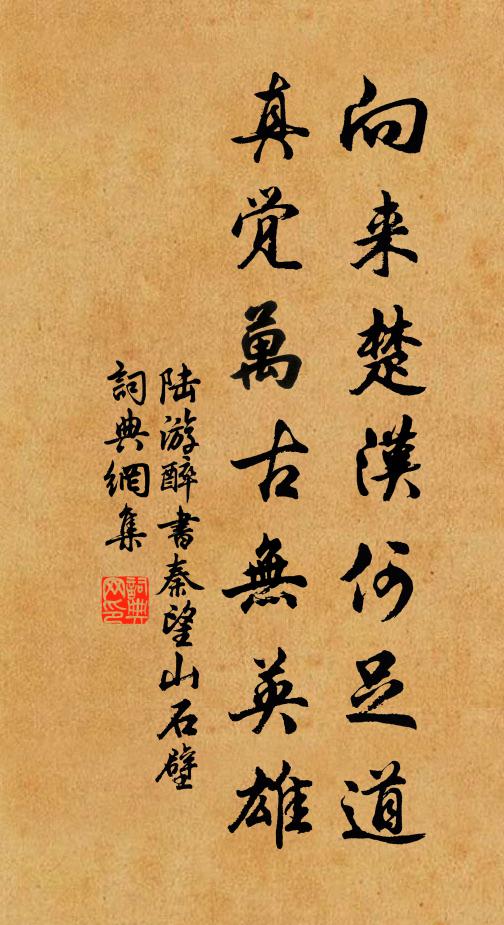 向来楚漢何足道
真覚萬古無英雄
陆游醉書秦望山石壁
詞典網集
詞典网印